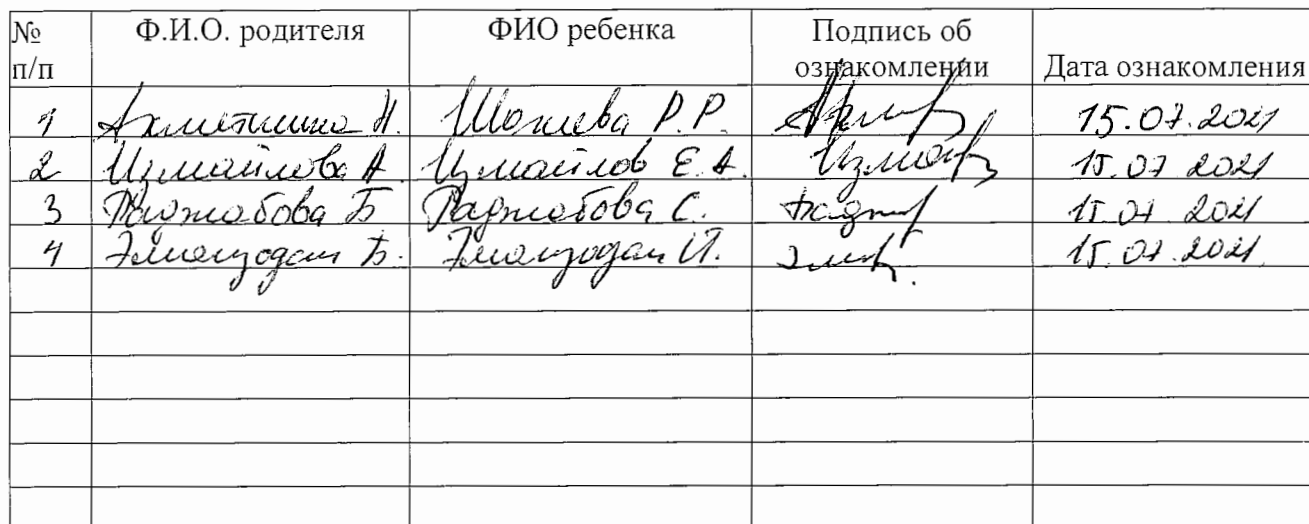 № п/п Ф.И.О. родителя ФИО ребенка Подпись об ознакомлении Дата ознакомления
1 Ахметшина Н. Р. Р. 15.07.2021
2 Измайлова А. Измайлов Е. А. 15.07 2021
3 Раджабова Б Раджабова С. 15.07 2021
4 Б. И. 15.07.2021